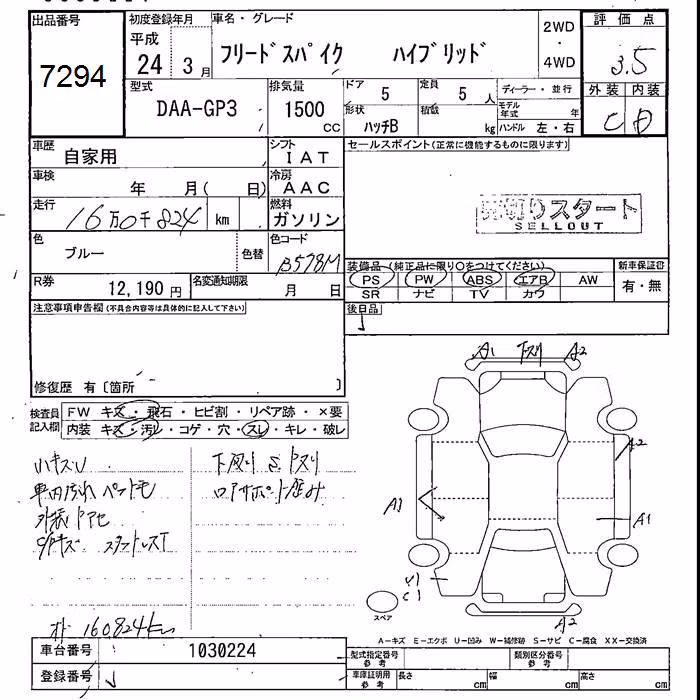 出品番号
7294
初度登録年月
平成
24 3月
車名・グレード
フリードスパイク ハイブリッド
2WD
・
4WD
評価点
3.5
外装 内装
C D
型式
DAA-GP3
排気量
1500
cc
ドア
5
定員
5 人
形状
ハッチB
積載
kg
ディーラー・並行
モデル年式 年
ハンドル 左・右
車歴
自家用
シフト
IAT
車検
年 月( 日)
冷房
AAC
走行
16万0千824 km
燃料
ガソリン
色
ブルー
色替
色コード
B578M
R券
12,190 円
名変通知期限
月 日
セールスポイント(正常に機能するものに限ります)
売切りスタート
SELLOUT
装備品(純正品に限り○をつけてください)
PS PW ABS エアB AW
SR ナビ TV カワ
新車保証書
有・無
後日品
注意事項申告欄(不具合内容等は具体的に記入して下さい)
修復歴 有〔箇所 〕
検査員記入欄
FW キズ・飛石・ヒビ割・リペア跡・×要
内装 キズ・汚レ・コゲ・穴・スレ・キレ・破レ
ハキズU
車内汚れ ペットモ
下廻り S.ドスリ
ロアサポート歪み
A1 下スリ A2
A2
A1
A1
A2
スペア
オド 160824km
A－キズ E－エクボ U－凹み W－補修跡 S－サビ C－腐食 XX－交換済
車台番号
1030224
登録番号
型式指定番号
参考
類別区分番号
参考
車庫証明用
参考
長さ cm
幅 cm
高さ cm